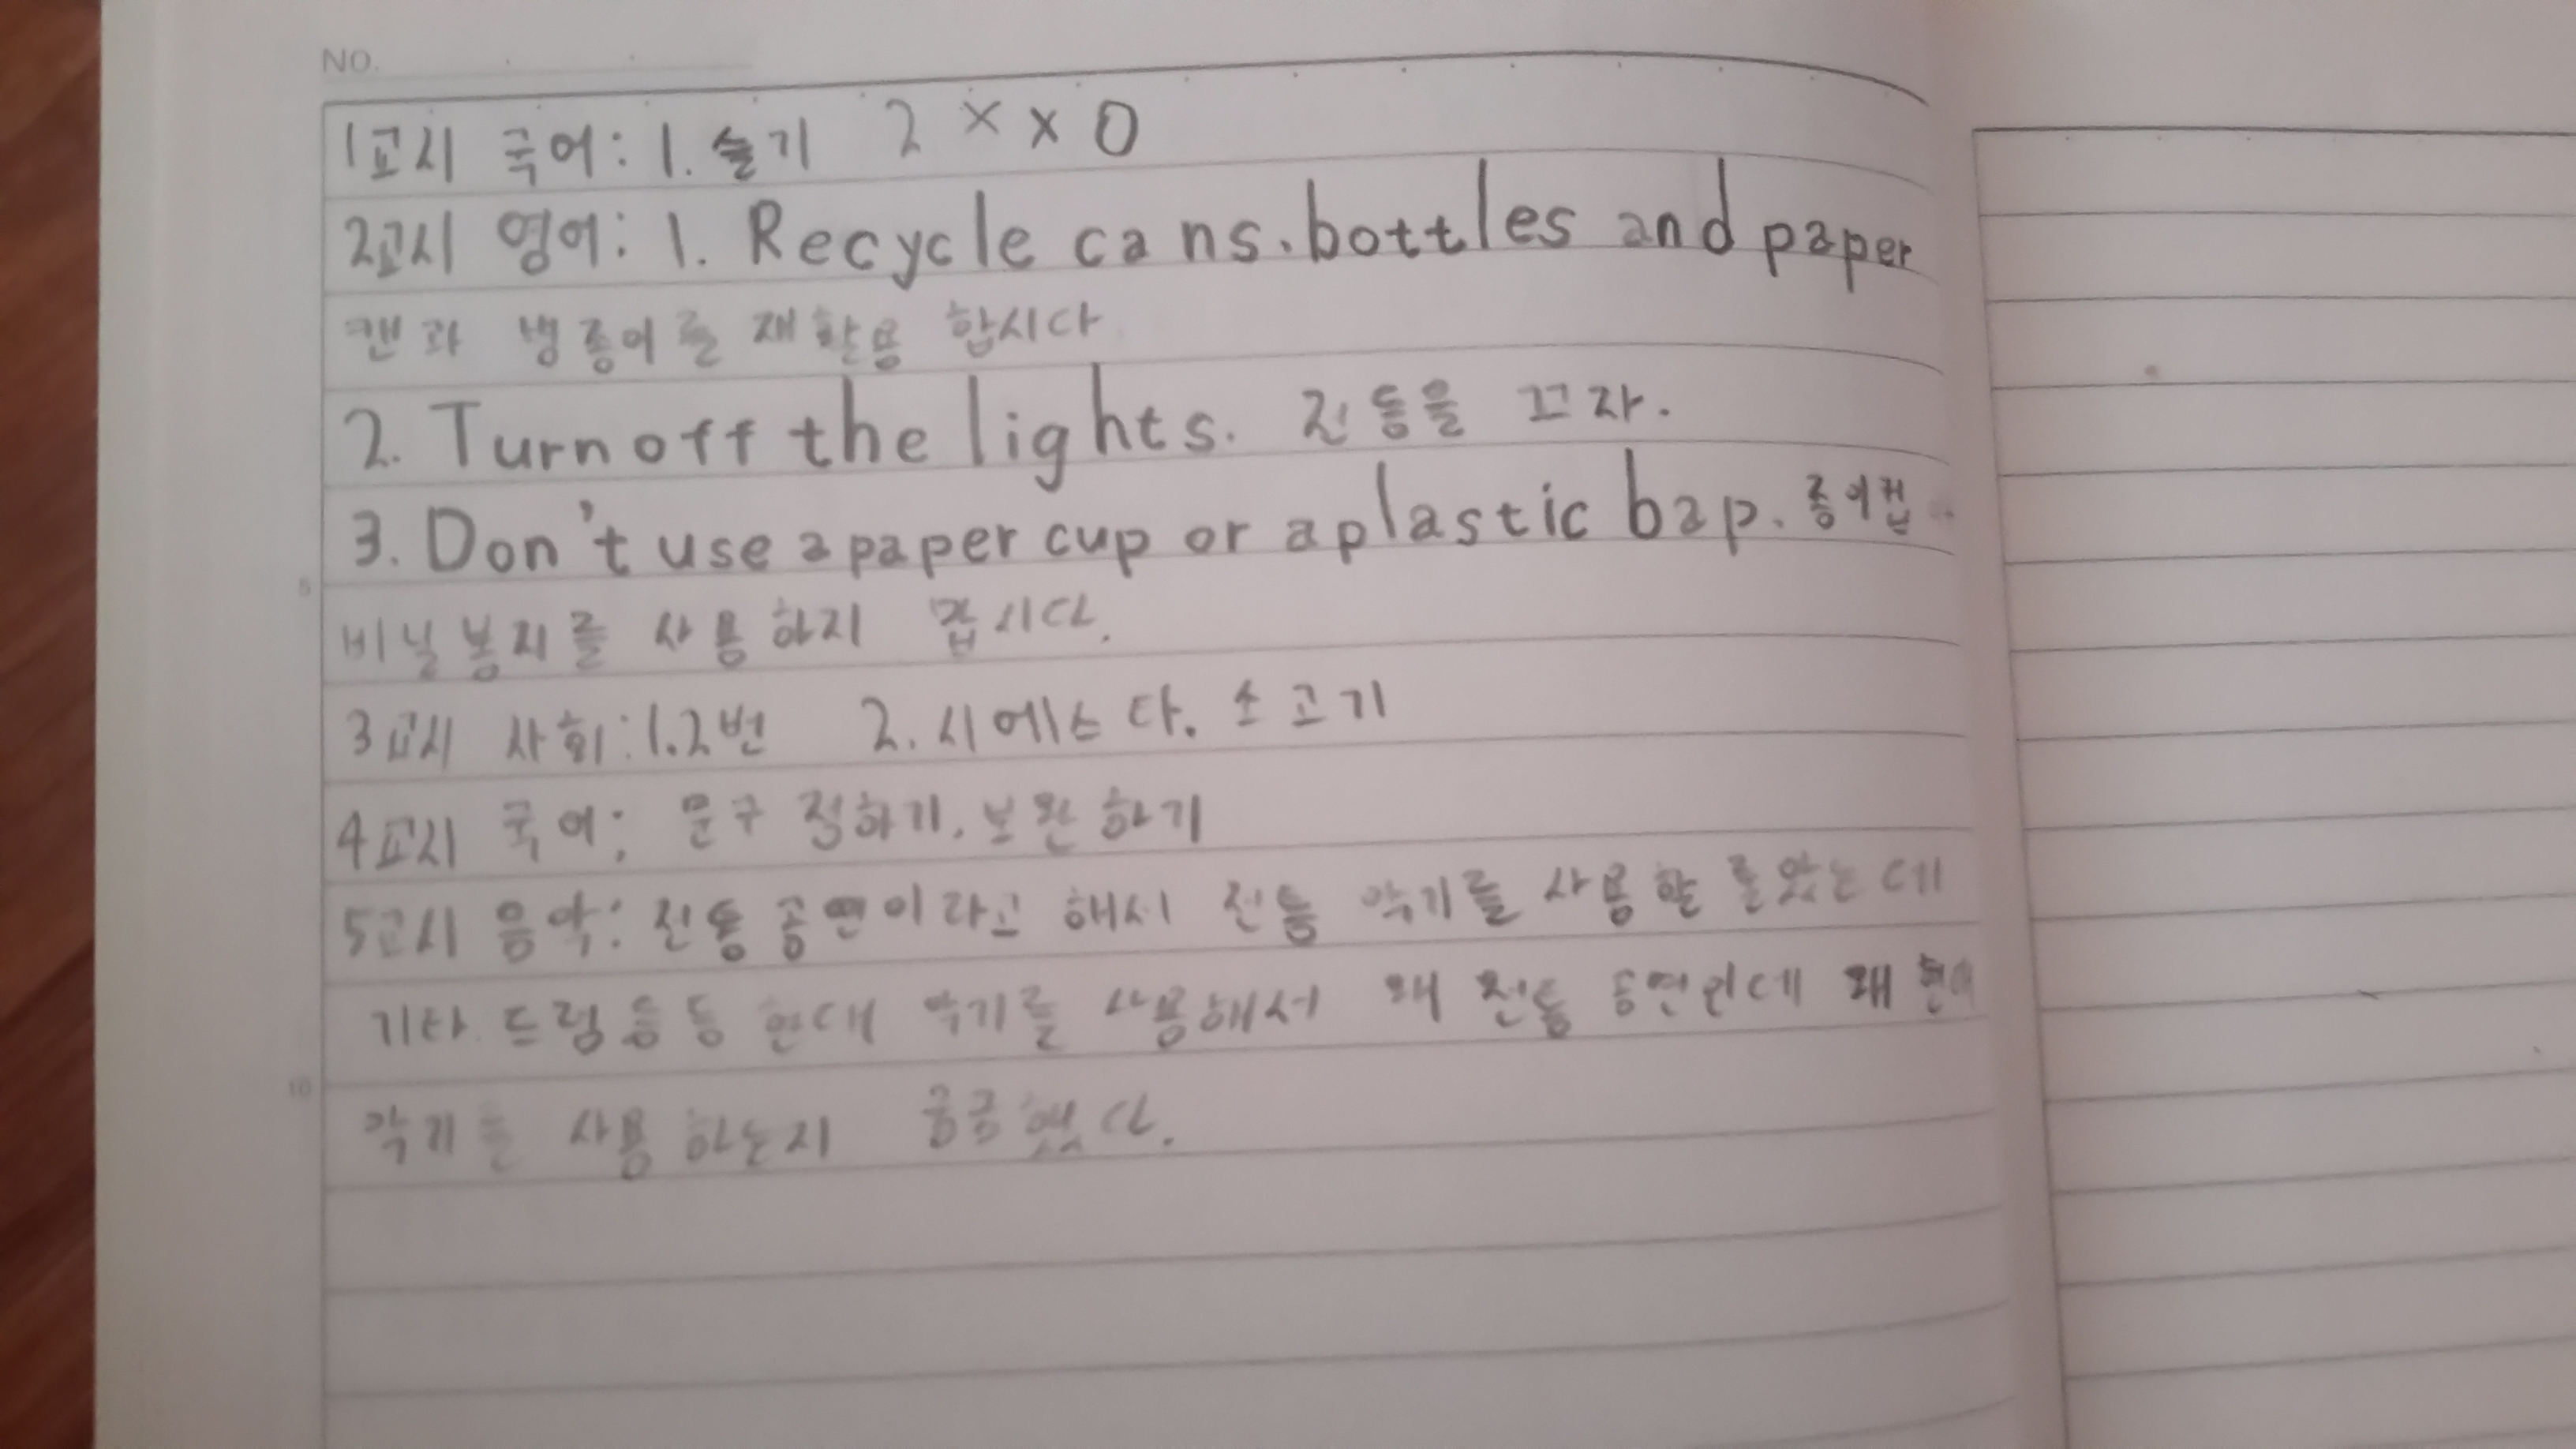 NO.
1교시 국어: 1. 슬기 2 × × 0
2교시 영어: 1. Recycle cans. bottles and paper
캔과 병 종이를 재활용 합시다
2. Turn off the lights. 전등을 끄자.
3. Don't use a paper cup or a plastic bap. 종이컵
5
비닐봉지를 사용하지 맙시다.
3교시 사회: 1. 2번 2. 시에스타. 소고기
4교시 국어: 문구 정하기. 보완하기
5교시 음악: 전통 공연이라고 해서 전통 악기를 사용할 줄 았는데
기타. 드럼 등등 현대 악기를 사용해서 왜 전통 공연인데 왜
10
악기를 사용하는지 궁금했다.